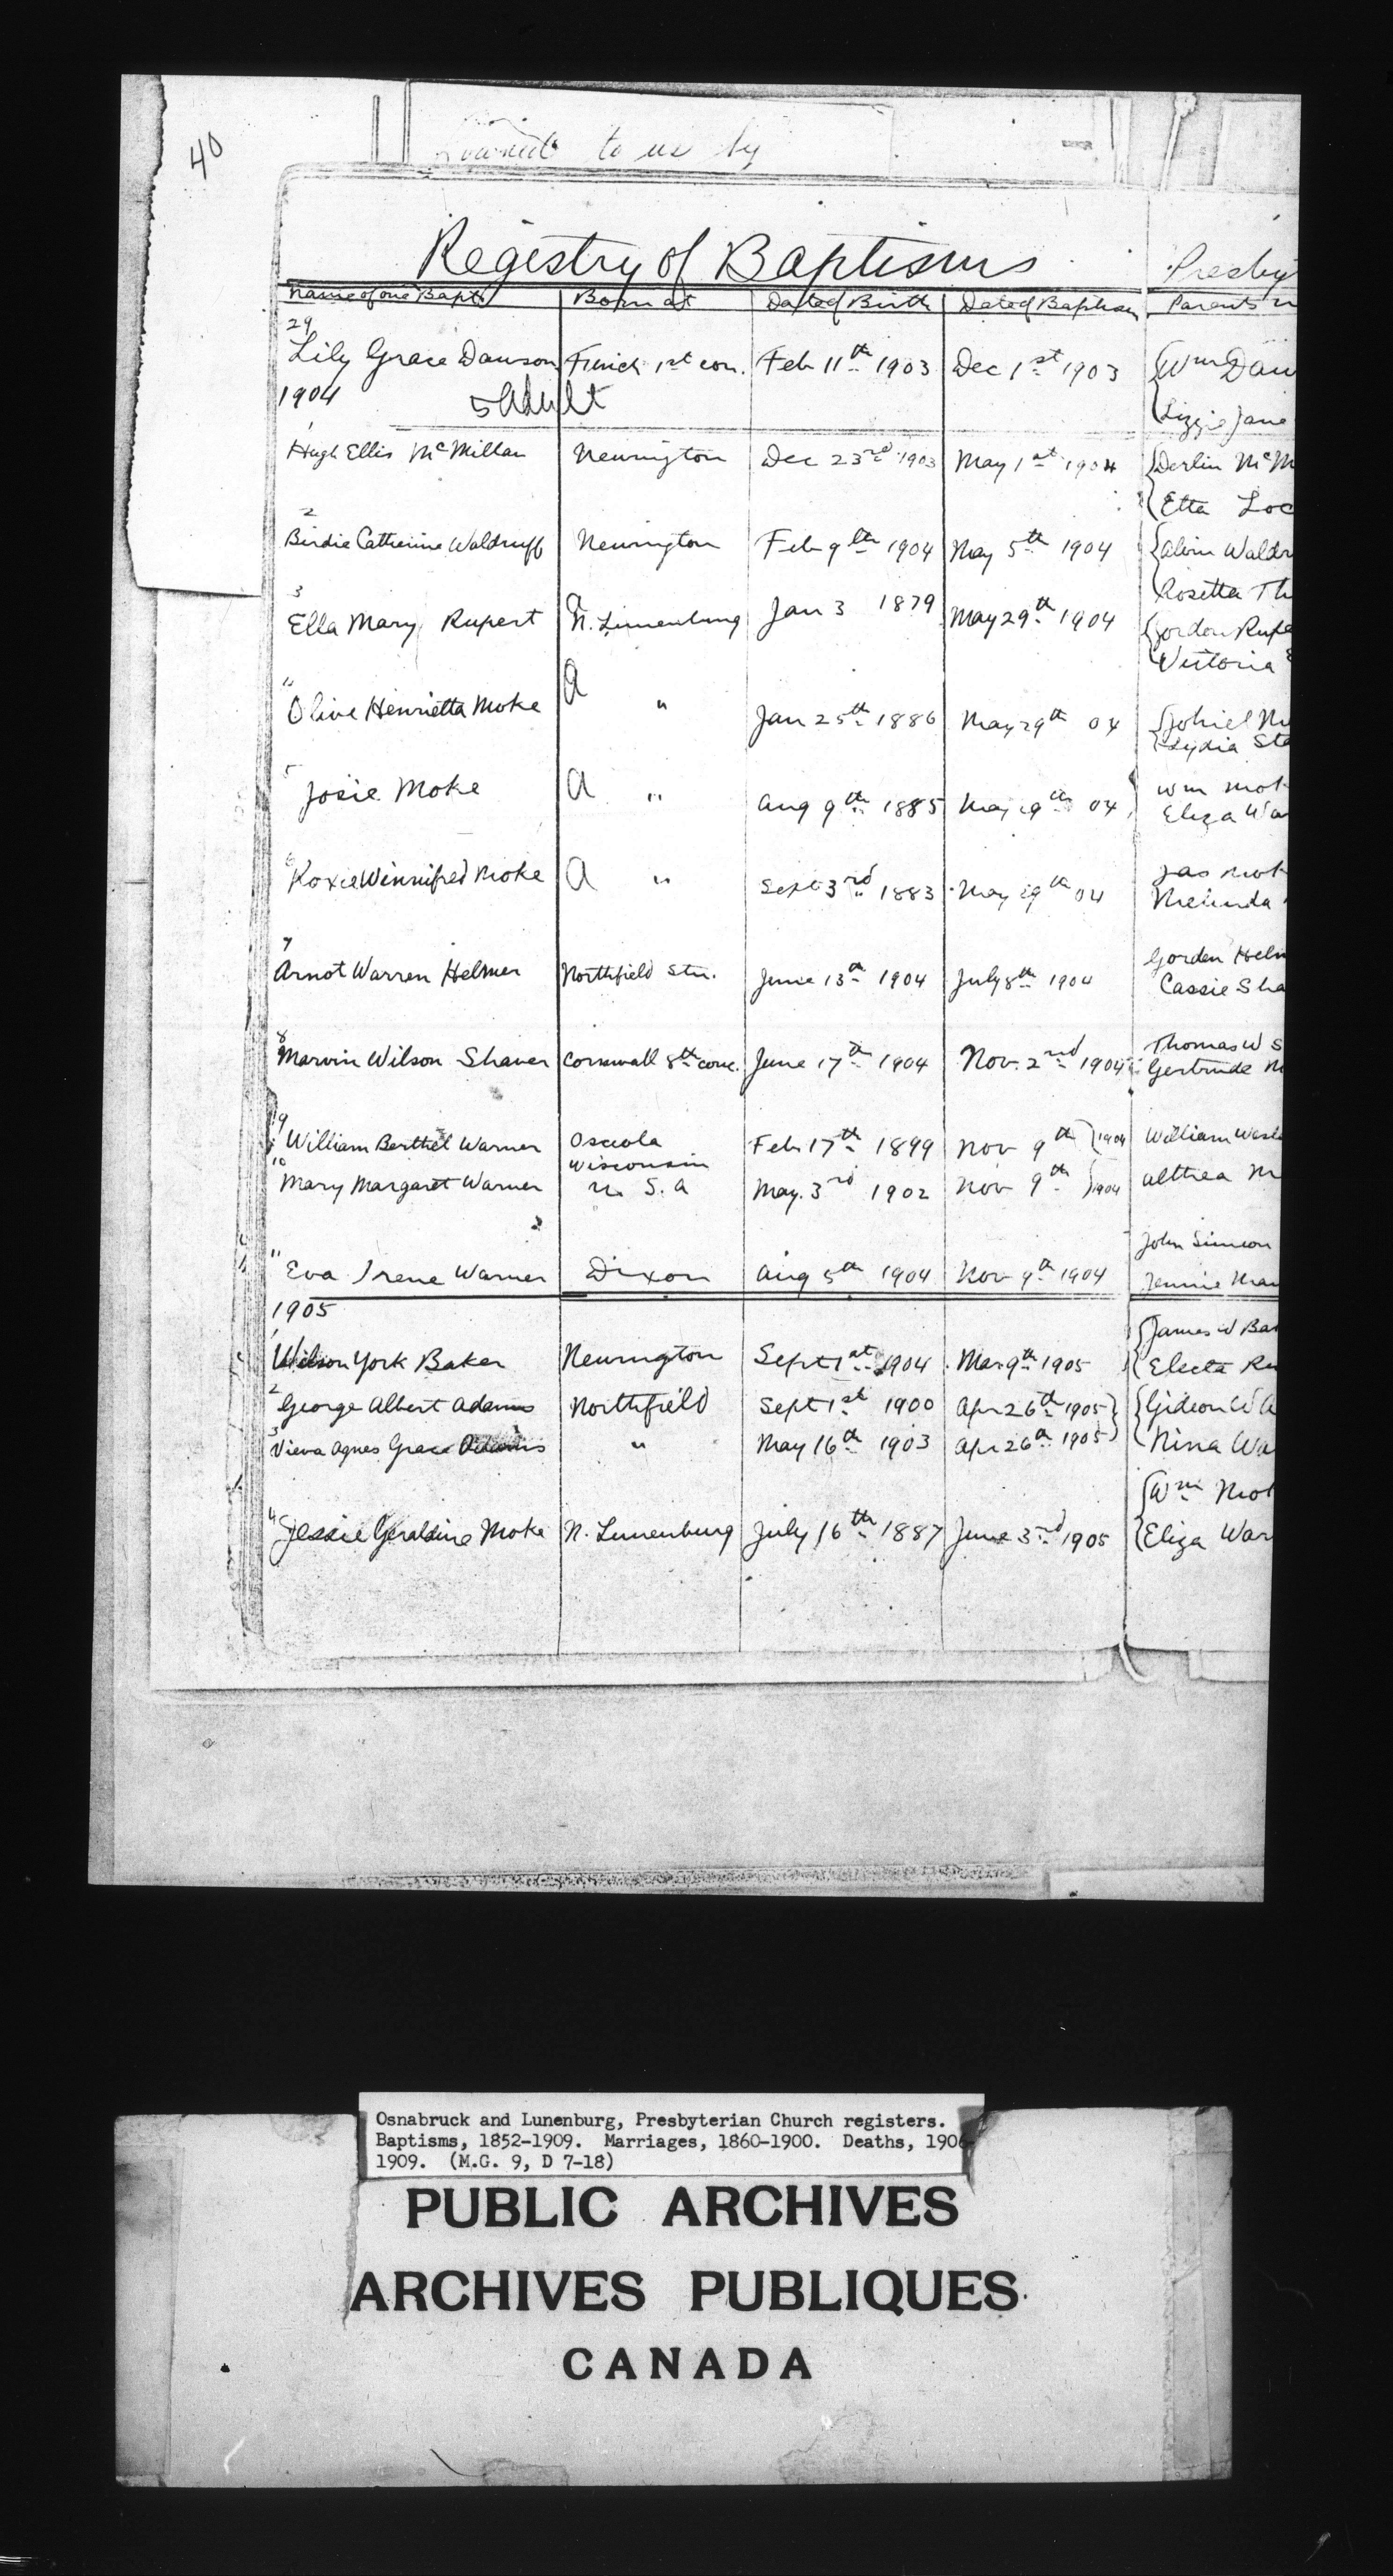 40
Loaned to us by
Registry of Baptisms Presby
Name of one Bapt. Born at Date of Birth Date of Baptism Parents n
29
Lily Grace Dawson Finch 1st con. Feb 11th 1903 Dec 1st 1903 Wm Daw
1904 5 Adult Lizzie Jane
1
Hugh Ellis McMillan Newington Dec 23rd 1903 May 1st 1904 Derlin McM
Etta Loc
2
Birdie Catherine Waldruff Newington Feb 9th 1904 May 5th 1904 Alvin Waldr
Rosetta Th
3
Ella Mary Rupert A N. Lunenburg Jan 3 1879 May 29th 1904 Gordon Rupe
Victoria
Olive Henrietta Moke A " Jan 25th 1886 May 29th 04
Lydia Sta
5
Josie Moke A " Aug 9th 1885 May 29th 04 Wm Mok
Eliza Wa
6
Roxie Winnifred Moke A " Sept 3rd 1883 May 29th 04 Jas Mok
Melinda
7
Arnot Warren Helmer Northfield Stn. June 13th 1904 July 8th 1904 Gorden Helm
Cassie Sha
8
Marvin Wilson Shaver Cornwall 8th conc. June 17th 1904 Nov. 2nd 1904 Thomas W S
Gertrude M
9
William Berthel Warner Osceola Feb 17th 1899 Nov 9th 1904 William Wesl
Wisconsin
10
Mary Margaret Warner U. S. A May. 3rd 1902 Nov 9th 1904 Althea M
John Simeon
11
Eva Irene Warner Dixon Aug 5th 1904 Nov 9th 1904 Jennie Mar
1905
1 James W Bak
Wilson York Baker Newington Sept 1st 1904 Mar 9th 1905 Electa Ru
2
George Albert Adams Northfield Sept 1st 1900 Apr 26th 1905 Gideon W A
3
Vieva Agnes Grace Adams " May 16th 1903 Apr 26th 1905 Nina Wa
Wm Mok
4
Jessie Geraldine Moke N. Lunenburg July 16th 1887 June 3rd 1905 Eliza War
Osnabruck and Lunenburg, Presbyterian Church registers.
Baptisms, 1852-1909. Marriages, 1860-1900. Deaths, 1906-
1909. (M.G. 9, D 7-18)
PUBLIC ARCHIVES
ARCHIVES PUBLIQUES
CANADA